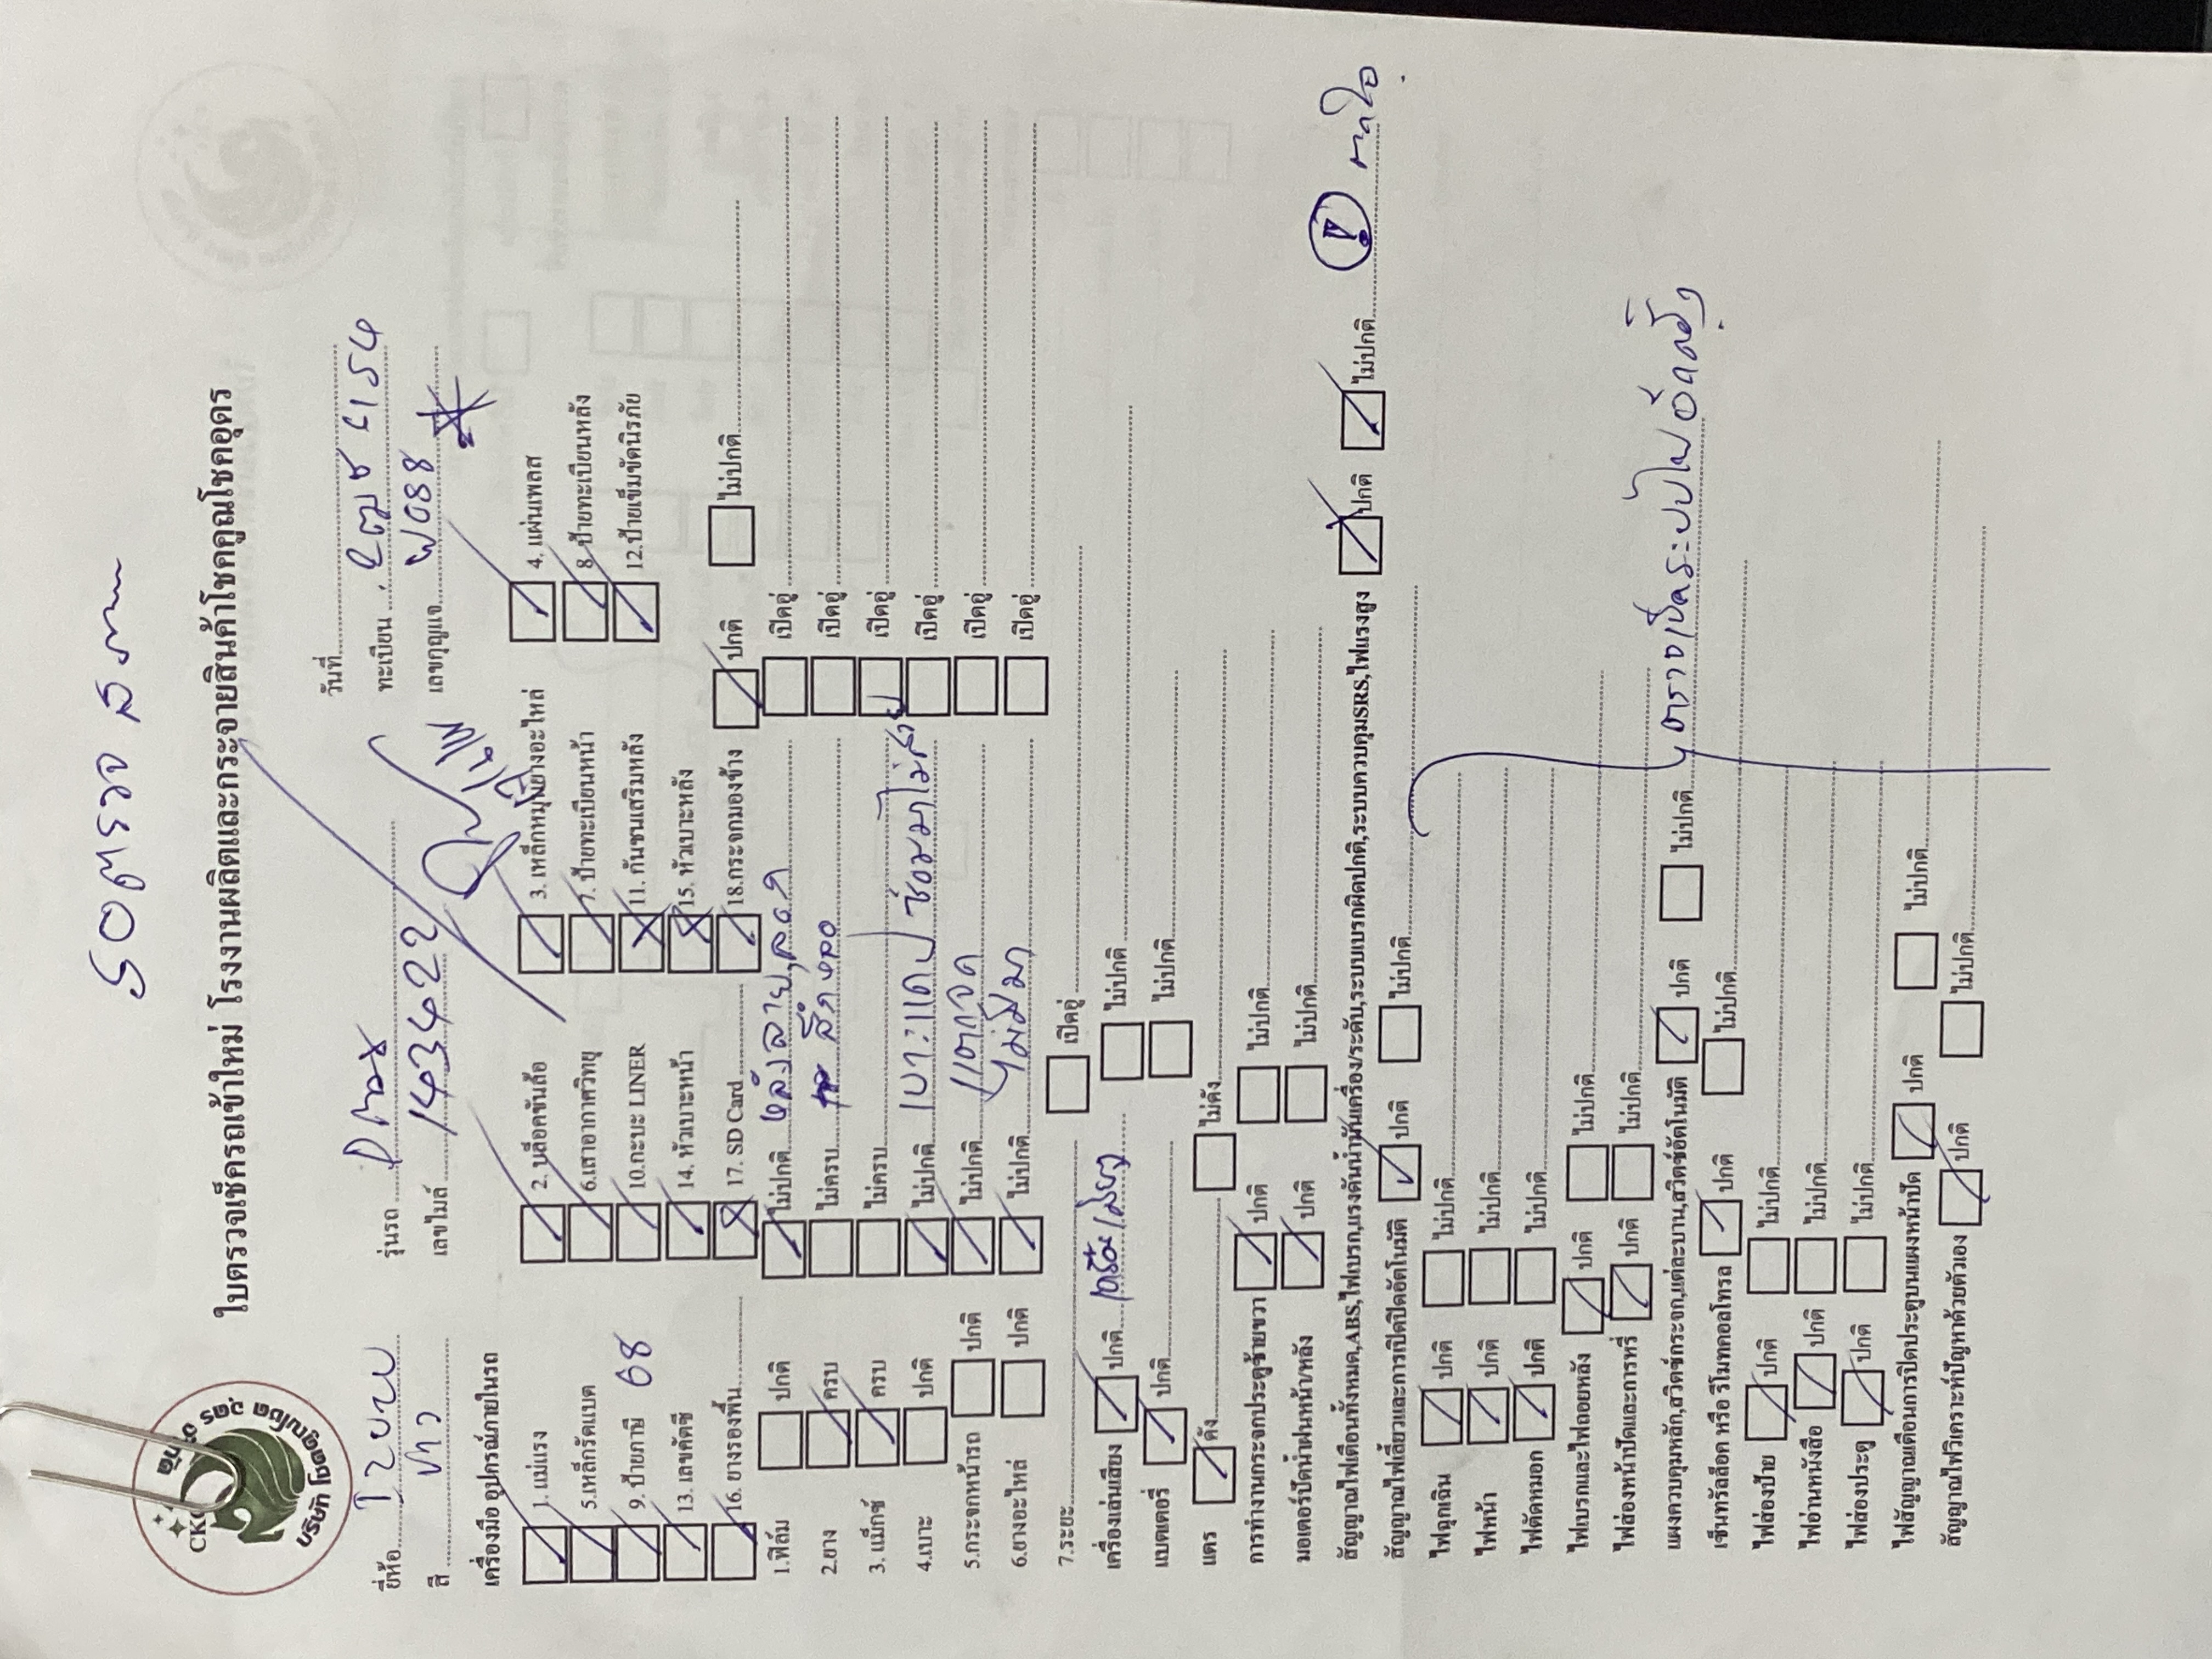 รอตรวจ สภาพ
บริษัท โชคคูณโชค 395 จำกัด
CKC
ใบตรวจเช็ครถเข้าใหม่ โรงงานผลิตและกระจายสินค้าโชคคูณโชคอุดร
วันที่
ยี่ห้อ รุ่นรถ Dmax ทะเบียน
สี ขาว เลขไมล์ 143422 เลขกุญแจ
เครื่องมือ อุปกรณ์ภายในรถ
1. แม่แรง 2. บล็อคขันล้อ 3. เหล็กหมุนยางอะไหล่ 4. แผ่นเพลส
5.เหล็กรัดแบต 6.เสาอากาศวิทยุ 7. ป้ายทะเบียนหน้า 8. ป้ายทะเบียนหลัง
9. ป้ายภาษี 68 10.กะบะ LINER 11. กันชนเสริมหลัง 12.ป้ายเข็มขัดนิรภัย
13. เลขคัตซี 14. หัวเบาะหน้า 15. หัวเบาะหลัง
16. ยางรองพื้น 17. SD Card 18.กระจกมองข้าง ปกติ ไม่ปกติ
1.ฟิล์ม ปกติ ไม่ปกติ หลังลาย,ลอก เปิดอู่
2.ยาง ครบ ไม่ครบ สึกหรอ เปิดอู่
3. แม็กซ์ ครบ ไม่ครบ เปิดอู่
4.เบาะ ปกติ ไม่ปกติ เปิดอู่
5.กระจกหน้ารถ ปกติ ไม่ปกติ แตก เปิดอู่
6.ยางอะไหล่ ปกติ ไม่ปกติ ไม่มีมา เปิดอู่
7.ระยะ เปิดอู่
เครื่องเล่นเสียง ปกติ ไม่ปกติ
แบตเตอรี่ ปกติ ไม่ปกติ
แตร ดัง ไม่ดัง
การทำงานกระจกประตูซ้ายขวา ปกติ ไม่ปกติ
มอเตอร์ปัดน้ำฝนหน้า/หลัง ปกติ ไม่ปกติ
สัญญาณไฟเตือนทั้งหมด,ABS,ไฟเบรก,แรงดันน้ำมันเครื่อง/ระดับ,ระบบเบรกผิดปกติ,ระบบควบคุมSRS,ไฟแรงสูง ปกติ ไม่ปกติ
สัญญาณไฟเลี้ยวและการเปิดปิดอัตโนมัติ ปกติ ไม่ปกติ
ไฟฉุกเฉิน ปกติ ไม่ปกติ
ไฟหน้า ปกติ ไม่ปกติ
ไฟตัดหมอก ปกติ ไม่ปกติ
ไฟเบรกและไฟถอยหลัง ปกติ ไม่ปกติ
ไฟส่องหน้าปัดและการหรี่ ปกติ ไม่ปกติ
แผงควบคุมหลัก,สวิตช์กระจก,แต่ละบาน,สวิตช์อัตโนมัติ ปกติ ไม่ปกติ ตรวจเช็คระบบไฟ
เซ็นทรัลล็อค หรือ รีโมทคอลโทรล ปกติ ไม่ปกติ
ไฟส่องป้าย ปกติ ไม่ปกติ
ไฟอ่านหนังสือ ปกติ ไม่ปกติ
ไฟส่องประตู ปกติ ไม่ปกติ
ไฟสัญญาณเตือนการปิดประตูบนแผงหน้าปัด ปกติ ไม่ปกติ
สัญญาณไฟวิเคราะห์ปัญหาด้วยตัวเอง ปกติ ไม่ปกติ